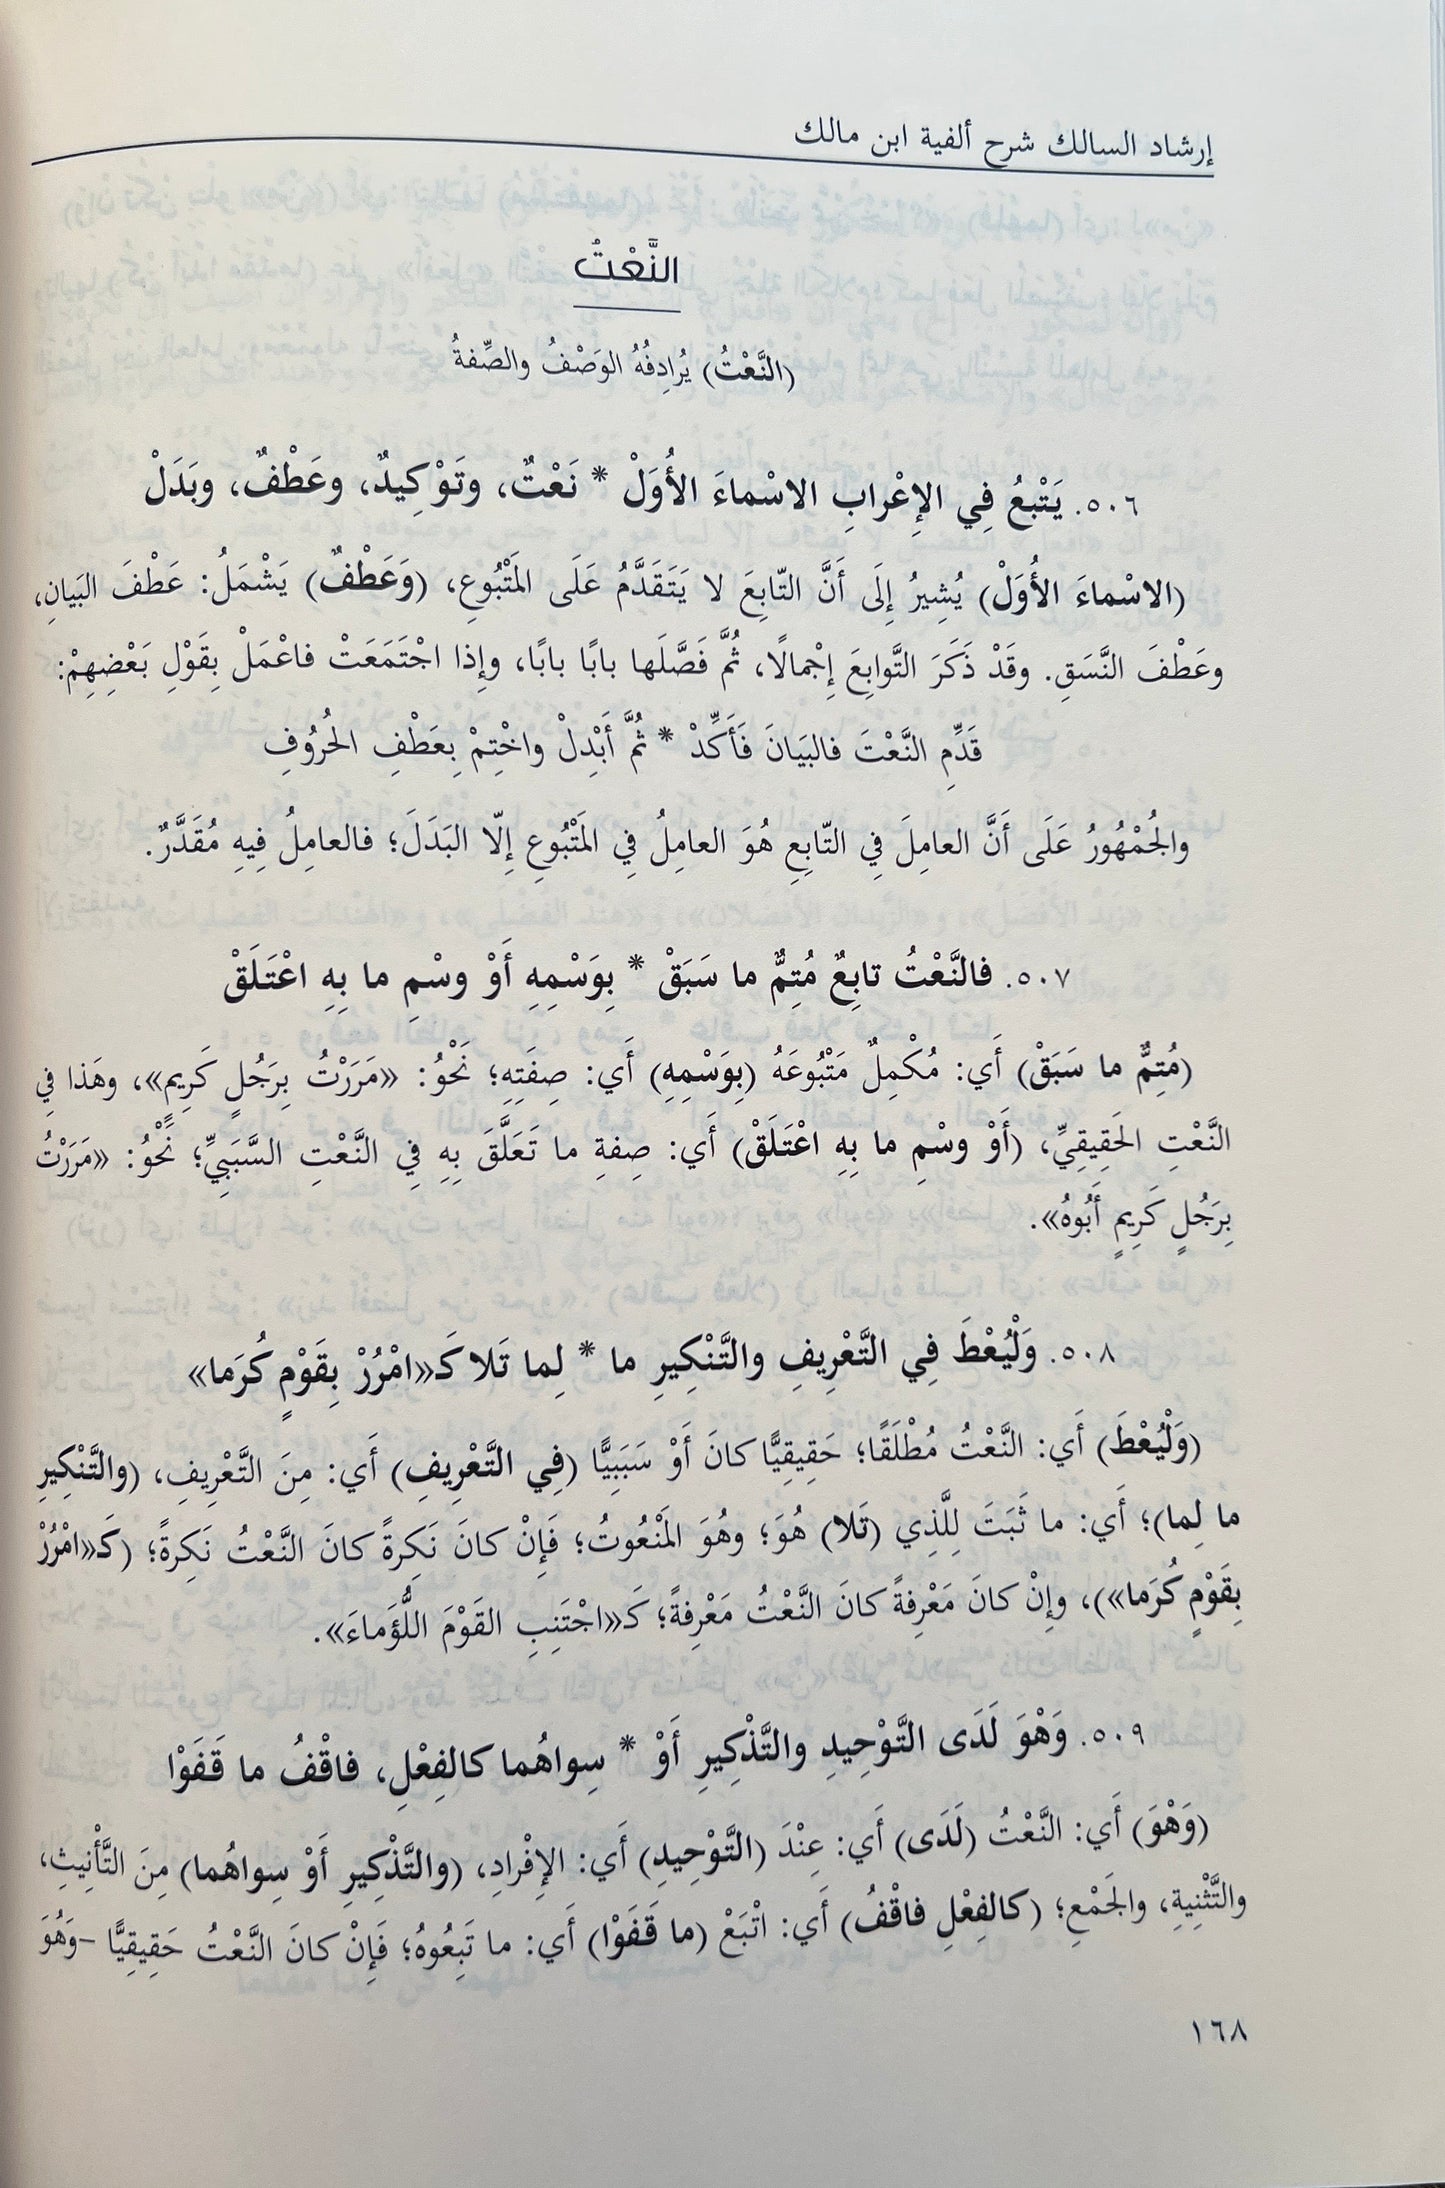 إرشاد السالك شرح ألفية ابن مالك
النَّعْتُ
(النَّعْتُ) يُرادِفُهُ الوَصْفُ والصِّفةُ
٥٠٦. يَتْبعُ فِي الإِعْرابِ الاسْماءَ الأُوَلْ * نَعْتٌ، وتَوْكِيدٌ، وعَطْفٌ، وبَدَلْ
(الاسْماءَ الأُوَلْ) يُشِيرُ إِلَى أَنَّ التّابِعَ لا يَتَقَدَّمُ عَلَى المَتْبُوعِ، (وَعَطْفٌ) يَشْمَلُ: عَطْفَ البَيانِ،
وعَطْفَ النَّسَقِ. وقَدْ ذَكَرَ التَّوابِعَ إِجْمالًا، ثُمَّ فَصَّلَها بابًا بابًا، وإِذا اجْتَمَعَتْ فاعْمَلْ بِقَوْلِ بَعْضِهِمْ:
قَدِّمِ النَّعْتَ فالبَيَانَ فَأَكِّدْ * ثُمَّ أَبْدِلْ واخْتِمْ بِعَطْفِ الحُرُوفِ
والجُمْهُورُ عَلَى أَنَّ العامِلَ فِي التّابِعِ هُوَ العامِلُ فِي المَتْبُوعِ إِلّا البَدَلَ؛ فالعامِلُ فِيهِ مُقَدَّرٌ.
٥٠٧. فالنَّعْتُ تابِعٌ مُتِمٌّ ما سَبَقْ * بِوَسْمِهِ أَوْ وسْمِ ما بِهِ اعْتَلَقْ
(مُتِمٌّ ما سَبَقْ) أَي: مُكْمِلٌ مَتْبُوعَهُ (بِوَسْمِهِ) أَي: صِفَتِهِ؛ نَحْوُ: «مَرَرْتُ بِرَجُلٍ كَرِيمٍ»، وهَذا فِي
النَّعْتِ الحَقِيقِيِّ، (أَوْ وسْمِ ما بِهِ اعْتَلَقْ) أَي: صِفةِ ما تَعَلَّقَ بِهِ فِي النَّعْتِ السَّبَبِيِّ؛ نَحْوُ: «مَرَرْتُ
بِرَجُلٍ كَرِيمٍ أَبُوهُ».
٥٠٨. وَلْيُعْطَ فِي التَّعْرِيفِ والتَّنْكِيرِ ما * لِما تَلا كَـ«امْرُرْ بِقَوْمٍ كُرَما»
(وَلْيُعْطَ) أَي: النَّعْتُ مُطْلَقًا؛ حَقِيقِيًّا كانَ أَوْ سَبَبِيًّا (فِي التَّعْرِيفِ) أَي: مِنَ التَّعْرِيفِ، (والتَّنْكِيرِ
ما لِما)؛ أَي: ما ثَبَتَ لِلَّذِي (تَلا) هُوَ؛ وهُوَ المَنْعُوتُ؛ فَإِنْ كانَ نَكِرةً كانَ النَّعْتُ نَكِرةً؛ (كَـ«امْرُرْ
بِقَوْمٍ كُرَما»)، وإِنْ كانَ مَعْرِفةً كانَ النَّعْتُ مَعْرِفةً؛ كَـ«اجْتَنِبِ القَوْمَ اللُّؤَماءَ».
٥٠٩. وَهْوَ لَدَى التَّوْحِيدِ والتَّذْكِيرِ أَوْ * سِواهُما كالفِعْلِ، فاقْفُ ما قَفَوْا
(وَهْوَ) أَي: النَّعْتُ (لَدَى) أَي: عِنْدَ (التَّوْحِيدِ) أَي: الإِفْرادِ، (والتَّذْكِيرِ أَوْ سِواهُما) مِنَ التَّأْنِيثِ،
والتَّثْنِيةِ، والجَمْعِ؛ (كالفِعْلِ فاقْفُ) أَي: اتْبَعْ (ما قَفَوْا) أَي: ما تَبِعُوهُ؛ فَإِنْ كانَ النَّعْتُ حَقِيقِيًّا -وَهُوَ
١٦٨